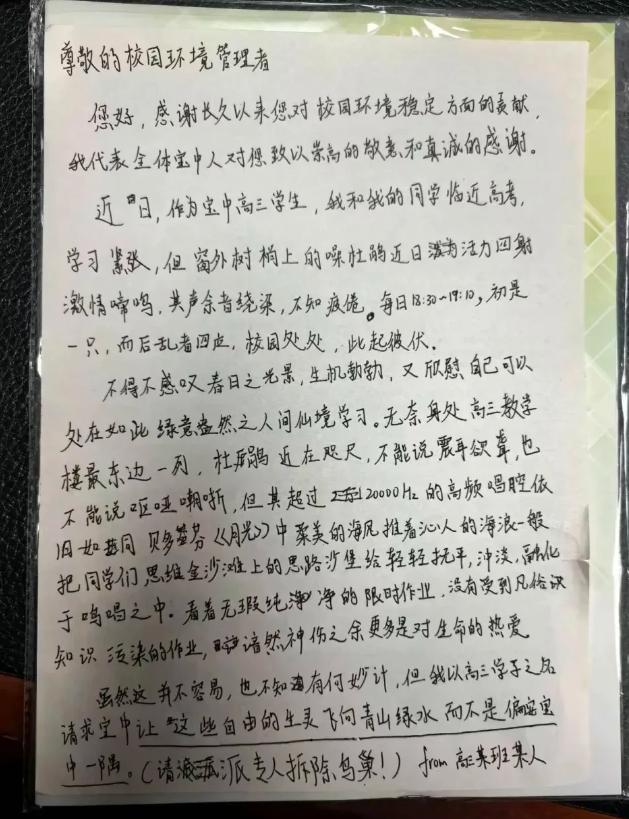 尊敬的校园环境管理者
您好，感谢长久以来您对校园环境稳定方面的贡献，
我代表全体宝中人对您致以崇高的敬意和真诚的感谢。
近日，作为宝中高三学生，我和我的同学临近高考，
学习紧张，但窗外树梢上的噪杜鹃近日活力四射
激情啼鸣，其声余音绕梁，不知疲倦。每日18:30~19:10，初是
一只，而后乱者四应，校园处处，此起彼伏。
不得不感叹春日之光景，生机勃勃，又欣慰自己可以
处在如此绿意盎然之人间仙境学习。无奈身处高三教学
楼最东边一列，杜鹃近在咫尺，不能说震耳欲聋，也
不能说呕哑嘲哳，但其超过20000Hz的高频唱腔依
旧如同贝多芬《月光》中柔美的海风推着沁人的海浪一般
把同学们思维金沙滩上的思路沙堡给轻轻抚平，冲淡，融化
于鸣唱之中。看着无瑕纯净的限时作业，没有受到凡俗识
知识污染的作业，黯然神伤之余更多是对生命的热爱
虽然这并不容易，也不知有何妙计，但我以高三学子之名
请求宝中让这些自由的生灵飞向青山绿水而不是偏安宝
中一隅。（请派专人拆除鸟巢！）from高三某班某人